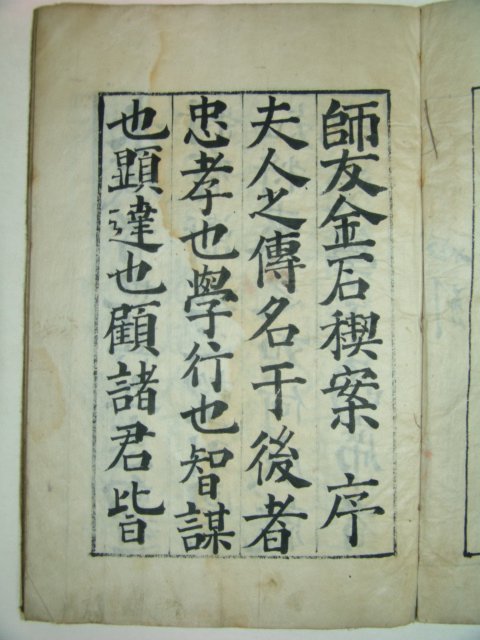 師友金石稧案 序
夫人之傳名于後者
忠孝也學行也智謀
也顕達也顧諸君皆